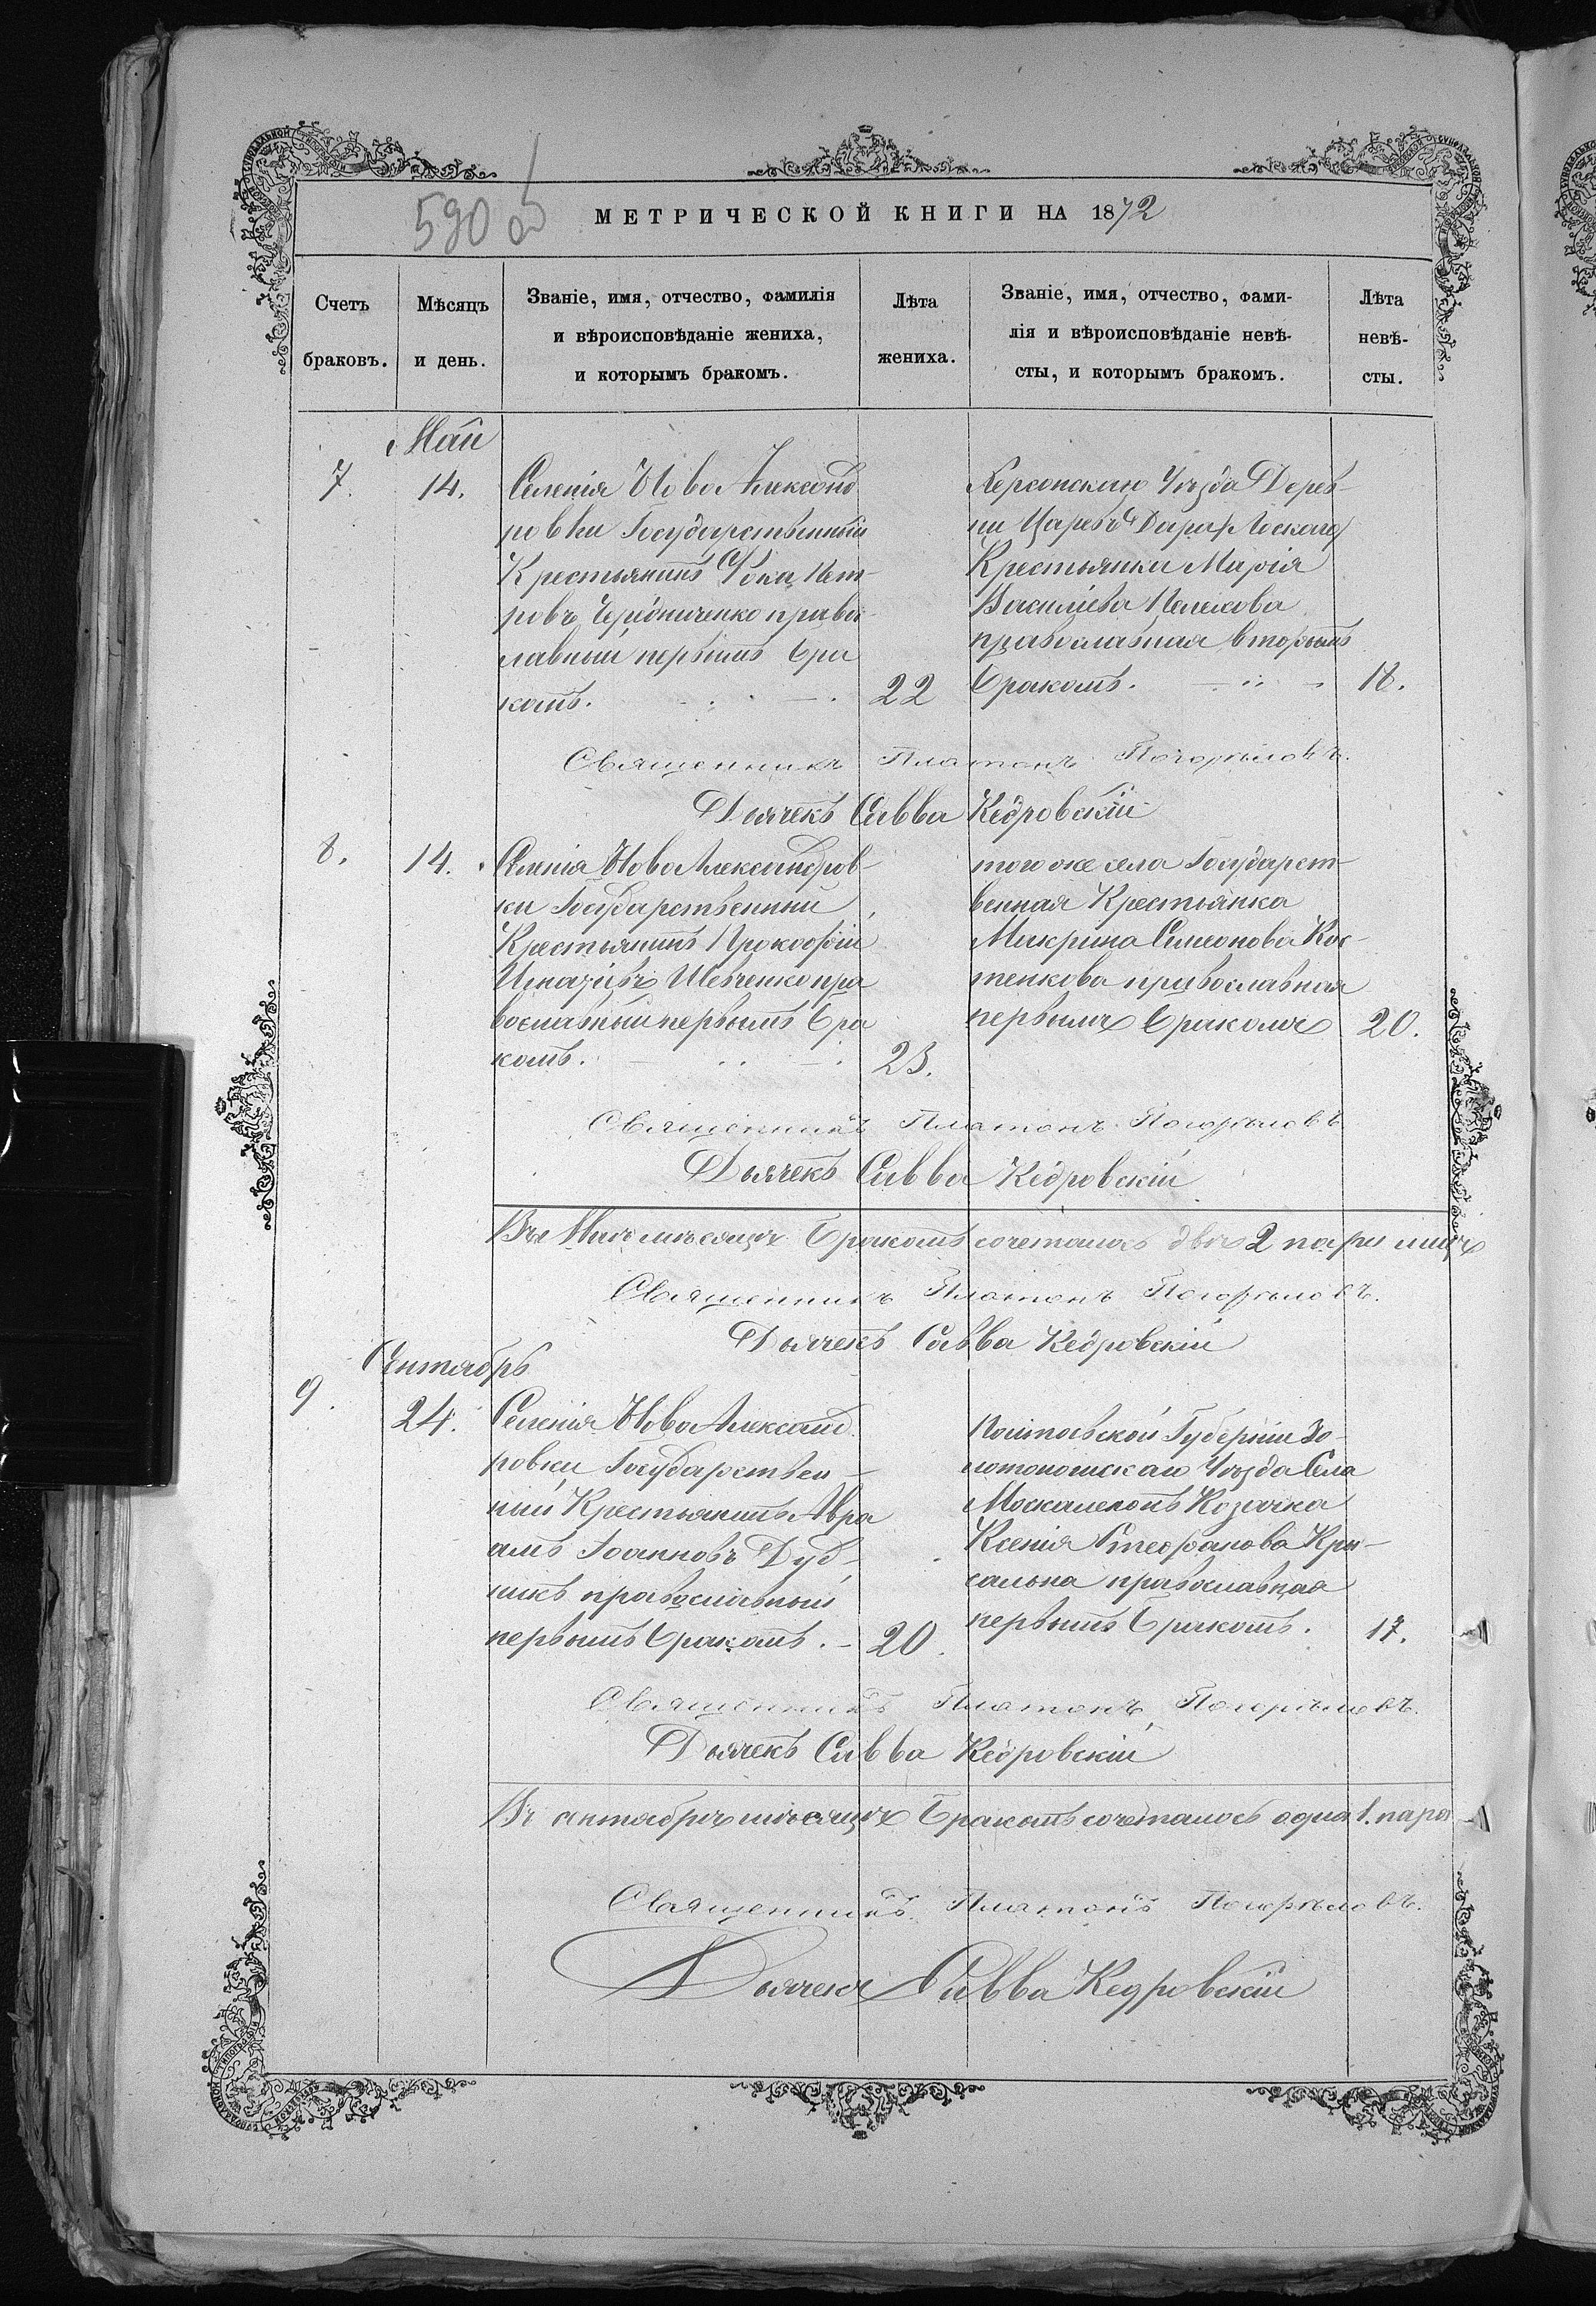 590 об
МЕТРИЧЕСКОЙ КНИГИ НА 1872
Счетъ браковъ.
Мѣсяцъ и день.
Званіе, имя, отчество, фамилія
и вѣроисповѣданіе жениха,
и которымъ бракомъ.
Лѣта жениха.
Званіе, имя, отчество, фами-
лія и вѣроисповѣданіе невѣ-
сты, и которымъ бракомъ.
Лѣта невѣ-
сты.
Май
7. 14.
Селенія Ново Александ
ровки Государственный
Крестьянинъ Пет-
ровъ Чередниченко право
славный первымъ бра
комъ. 22
Херсонскаго Уѣзда Дерев-
ни Царева Дара
Крестьянки Марія
Василіева Пелехова
православная вторымъ
бракомъ. 18.
Священникъ Платонъ Погорѣловъ.
Дьячекъ Савва Кедровскій
8. 14.
Селенія Ново Александров-
ки Государственный
Крестьянинъ Прокофій
Игнатіевъ Шевченко пра
вославный первымъ бра
комъ. 23.
того же села Государст-
венная Крестьянка
Макрина Симеонова Кос-
тенкова православная
первымъ бракомъ 20.
Священникъ Платонъ Погорѣловъ
Дьячекъ Савва Кедровскій
Въ Маѣ мѣсяцѣ бракомъ сочеталось двѣ 2 пары лицъ
Священникъ Платонъ Погорѣловъ.
Дьячекъ Савва Кедровскій
Сентябрь
9. 24.
Селенія Ново Александ
ровки Государствен-
ный Крестьянинъ Авра
амъ Іоанновъ Дуб-
никъ православный
первымъ бракомъ. - 20.
Полтавской Губерніи Зо-
лотоношскаго Уѣзда Села
Москаленокъ Козачка
Ксенія Стефанова Кри-
сальна православная
первымъ бракомъ. 17.
Священникъ Платонъ Погорѣловъ.
Дьячекъ Савва Кедровскій
Въ сентябрѣ мѣсяцѣ бракомъ сочеталось одна 1. пара
Священникъ Платонъ Погорѣловъ.
Дьячекъ Савва Кедровскій